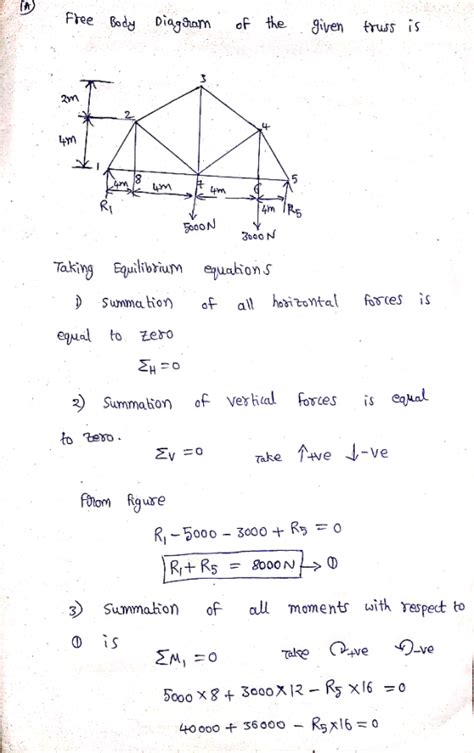 (A)
Free Body Diagram of the given truss is
3
2m
2
4
4m
1
8
7
6
5
4m
4m
4m
4m
R1
R5
5000N
3000N
Taking Equilibrium equations
1) Summation of all horizontal forces is
equal to zero
ΣH = 0
2) Summation of vertical forces is equal
to zero.
ΣV = 0 Take ↑+ve ↓-ve
From figure
R1 - 5000 - 3000 + R5 = 0
R1 + R5 = 8000N → ①
3) Summation of all moments with respect to
① is
ΣM1 = 0 Take ↻+ve ↺-ve
5000 × 8 + 3000 × 12 - R5 × 16 = 0
40000 + 36000 - R5 × 16 = 0